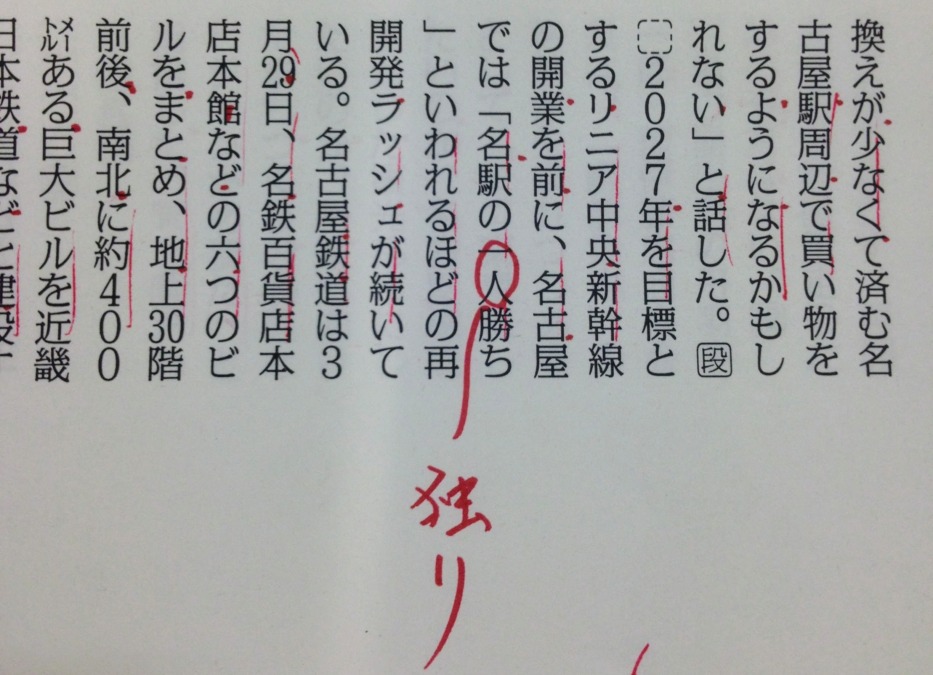 換えが少なくて済む名
古屋駅周辺で買い物を
するようになるかもし
れない」と話した。段
2027年を目標と
するリニア中央新幹線
の開業を前に、名古屋
では「名駅の一人勝ち
」といわれるほどの再
開発ラッシュが続いて
いる。名古屋鉄道は3
月29日、名鉄百貨店本
店本館などの六つのビ
ルをまとめ、地上30階
前後、南北に約400
メートルある巨大ビルを近畿
日本鉄道などと建設す
独り